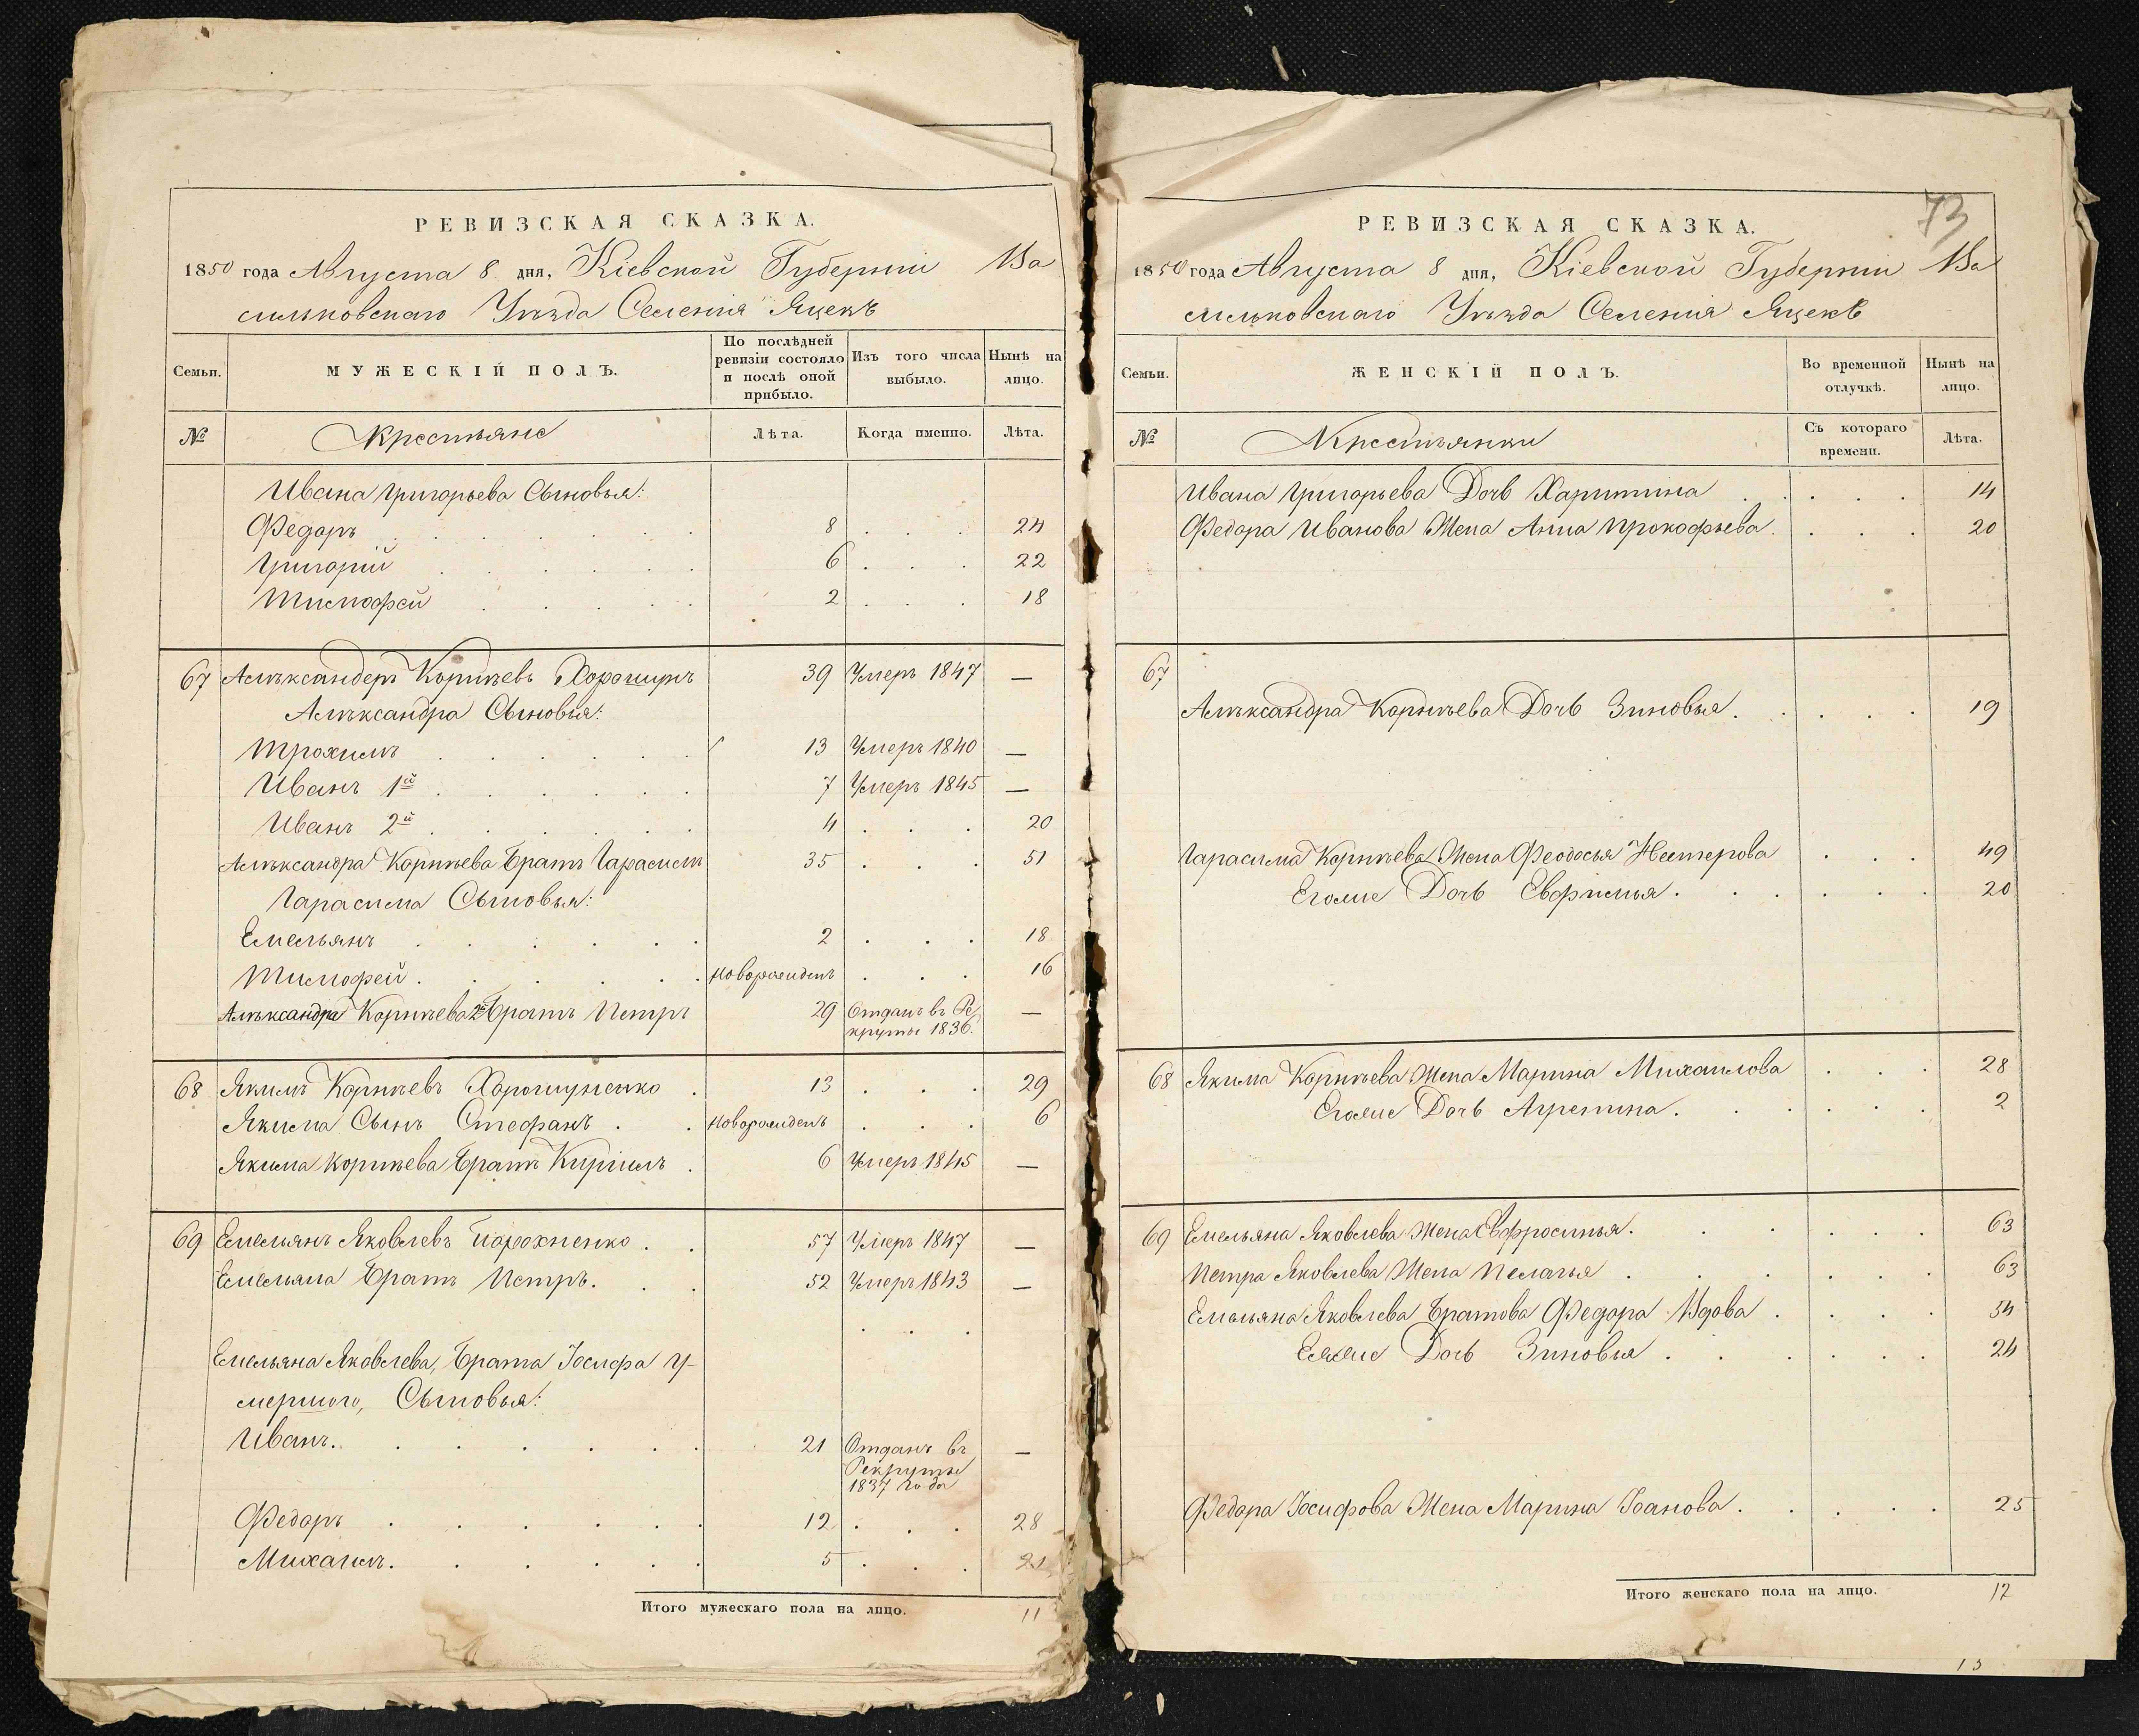 РЕВИЗСКАЯ СКАЗКА.
1850 года Августа 8 дня, Кіевской Губерніи Ва
сильковскаго Уѣзда Селенія Яцекъ
Семьи.
МУЖЕСКІЙ ПОЛЪ.
По послѣдней ревизіи состояло и послѣ оной прибыло.
Изъ того числа выбыло.
Нынѣ на лицо.
№ Крестьяне Лѣта. Когда именно. Лѣта.
Ивана Григорьева Сыновья:
Федоръ 8 24
Григорій 6 22
Тимофей 2 18
67 Алѣксандеръ Корнѣевъ Хорошунъ 39 Умеръ 1847 —
Алѣксандра Сыновья:
Трохимъ 13 Умеръ 1840 —
Иванъ 1й 7 Умеръ 1845 —
Иванъ 2й 4 20
Алѣксандра Корнѣева Братъ Гарасимъ 35 51
Гарасима Сыновья:
Емельянъ 2 18
Тимофей Новорожденъ 16
Алѣксандра Корнѣева 2й Братъ Петръ 29 Отданъ въ Ре
круты 1836. —
68 Якимъ Корнѣевъ Хорошуненко 13 29
Якима Сынъ Стефанъ Новорожденъ 6
Якима Корнѣева Братъ Кирилъ 6 Умеръ 1845 —
69 Емельянъ Яковлевъ 57 Умеръ 1847 —
Емельяна Братъ Петръ. 52 Умеръ 1843 —
Емельяна Яковлева, Брата Іосифа у-
мершого, Сыновья:
Иванъ. 21 Отданъ въ
Рекруты
1837 года —
Федоръ 12 28
Михаилъ. 5 21
Итого мужескаго пола на лицо. 11
73
РЕВИЗСКАЯ СКАЗКА.
1850 года Августа 8 дня, Кіевской Губерніи Ва
сильковскаго Уѣзда Селенія Яцекъ
Семьи.
ЖЕНСКІЙ ПОЛЪ.
Во временной отлучкѣ.
Нынѣ на лицо.
№ Крестьянки Съ котораго времени. Лѣта.
Ивана Григорьева Дочь Харитина 14
Федора Иванова Жена Анна Прокофьева 20
67
Алѣксандра Корнѣева Дочь Зиновья. 19
Гарасима Корнѣева Жена Феодосья Нестерова 49
Егоже Дочь Евфимья. 20
68 Якима Корнѣева Жена Марина Михаилова 28
Егоже Дочь Агрепина. 2
69 Емельяна Яковлева Жена Евфросинья. 63
Петра Яковлева Жена Пелагья 63
Емельяна Яковлева Братова Федора Вдова 54
Еяже Дочь Зиновья 24
Федора Іосифова Жена Марина Іоанова. 25
Итого женскаго пола на лицо. 12